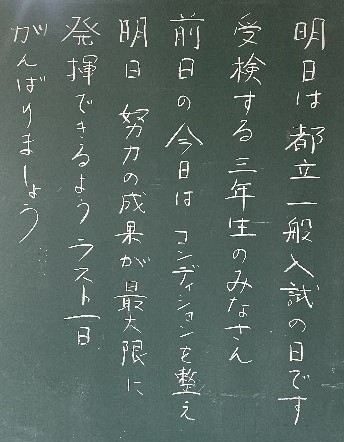 明日は都立一般入試の日です
受検する三年生のみなさん
前日の今日はコンディションを整え
明日 努力の成果が最大限に
発揮できるよう ラスト一日
がんばりましょう